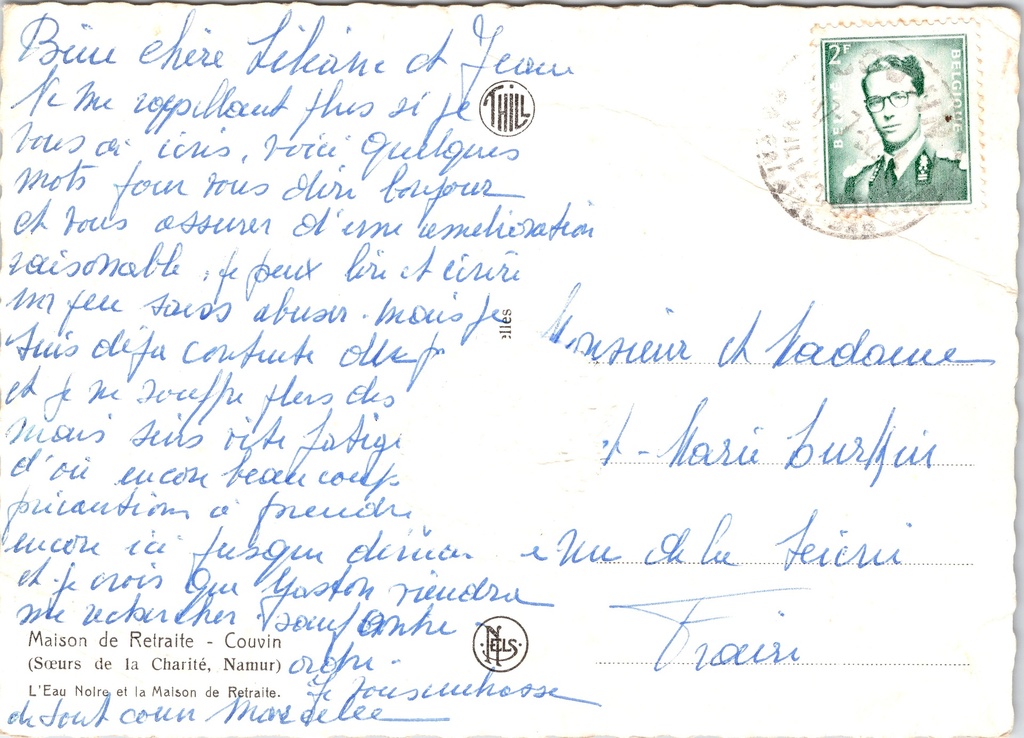 Bien chère Liliane et Jean
Ne me rappellant plus si je
vous ai écris, voici quelques
mots pour vous dire bonjour
et vous assurer d'une amélioration
raisonnable, je peux lire et écrire
un peu sans abuser. mais je
suis déjà contente
et je ne souffre plus des
mais suis vite
d'où encore beaucoup
précautions à prendre
encore ici jusque
et je crois que Gaston viendra
me rechercher. sauf contre
ordre.
Je vous embrasse
de tout cœur Marcelle
Maison de Retraite - Couvin
(Sœurs de la Charité, Namur)
L'Eau Noire et la Maison de Retraite.
THILL
NELS
2F
BELGIQUE
BELGIË
Monsieur et Madame
- Marie
rue de la Scierie
Fraire